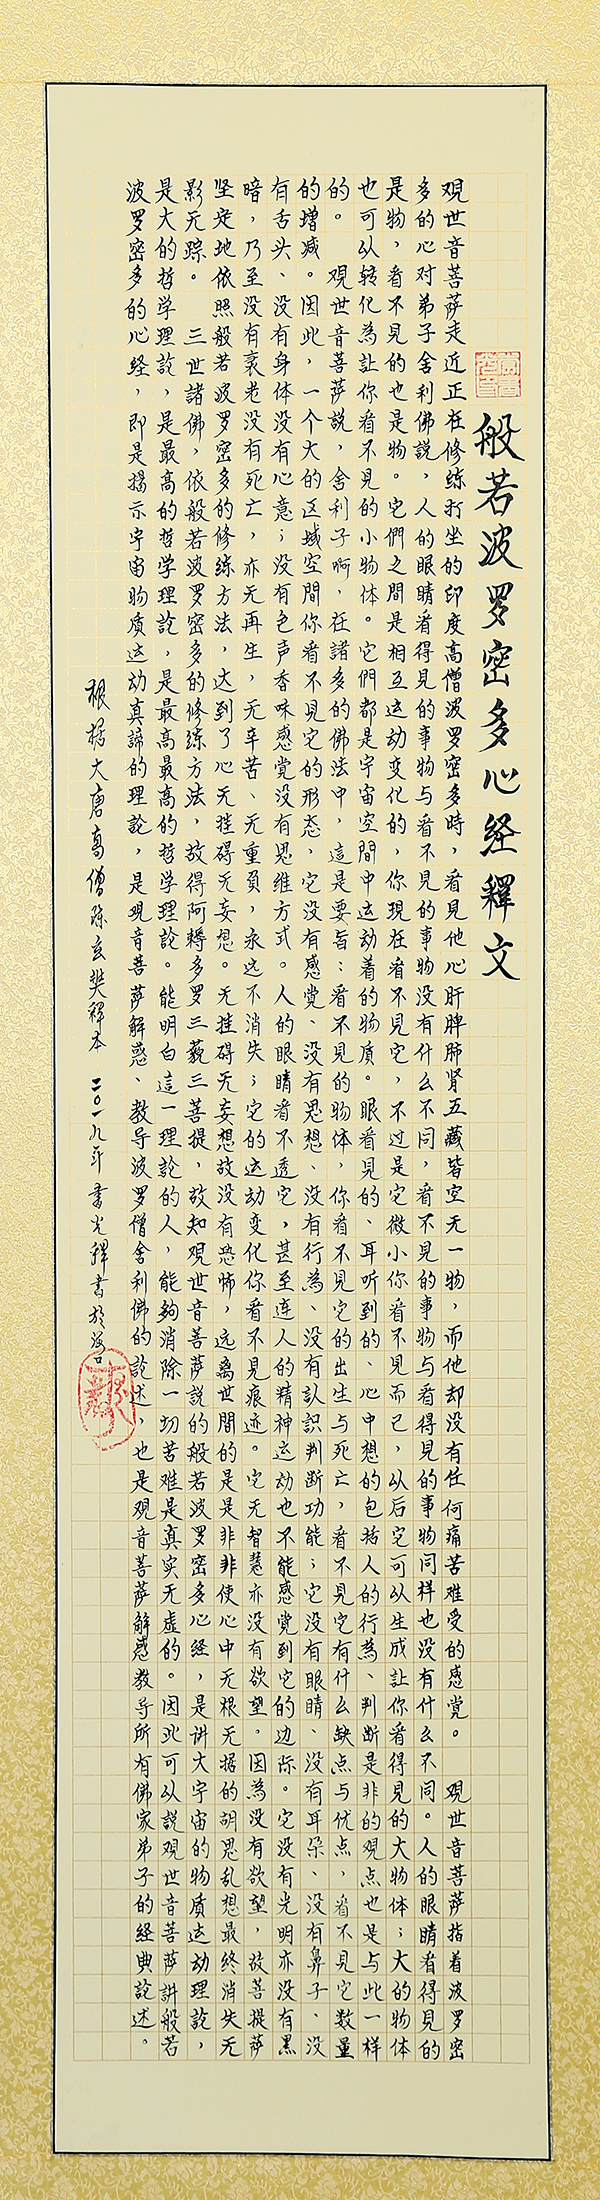 般若波罗密多心经釋文
观世音菩萨走近正在修练打坐的印度高僧波罗密多時，看見他心肝脾肺肾五藏皆空无一物，而他却没有任何痛苦难受的感觉。　观世音菩萨指着波罗密
多的心对弟子舍利佛説，人的眼睛看得見的事物与看不見的事物没有什么不同，看不見的事物与看得見的事物同样也没有什么不同。人的眼睛看得見的
是物，看不見的也是物。它們之間是相互运动变化的，你現在看不見它，不过是它微小你看不見而已，从后它可以生成让你看得見的大物体；大的物体
也可以转化為让你看不見的小物体。它們都是宇宙空間中运动着的物质。眼看見的、耳听到的、心中想的包括人的行為、判断是非的观点也是与此一样
的。　观世音菩萨説，舍利子啊，在諸多的佛法中，這是要旨：看不見的物体，你看不見它的出生与死亡，看不見它有什么缺点与优点，看不見它数量
的增减。因此，一个大的区域空間你看不見它的形态，它没有感觉、没有思想、没有行為、没有认識判断功能；它没有眼睛、没有耳朵、没有鼻子、没
有舌头、没有身体没有心意；没有色声香味感觉没有思维方式。人的眼睛看不透它，甚至连人的精神运动也不能感觉到它的边际。它没有光明亦没有黑
暗，乃至没有衰老没有死亡，亦无再生，无辛苦、无重負，永远不消失；它的运动变化你看不見痕迹。它无智慧亦没有欲望。因為没有欲望，故菩提萨
坚定地依照般若波罗密多的修练方法，达到了心无挂碍无妄想。无挂碍无妄想故没有恐怖，远离世間的是是非非使心中无根无据的胡思乱想最终消失无
影无踪。　三世諸佛，依般若波罗密多的修练方法，故得阿耨多罗三藐三菩提，故知观世音菩萨説的般若波罗密多心经，是讲大宇宙的物质运动理論，
是大的哲学理論，是最高的哲学理論，是最高最高的哲学理論。能明白這一理論的人，能夠消除一切苦难是真实无虚的。因此可从説观世音菩萨讲般若
波罗密多的心经，即是揭示宇宙物质运动真諦的理論，是观音菩萨解惑、教导波罗僧舍利佛的論述，也是观音菩萨解惑教导所有佛家弟子的经典論述。
根據大唐高僧陈玄奘释本　二〇一九年　書